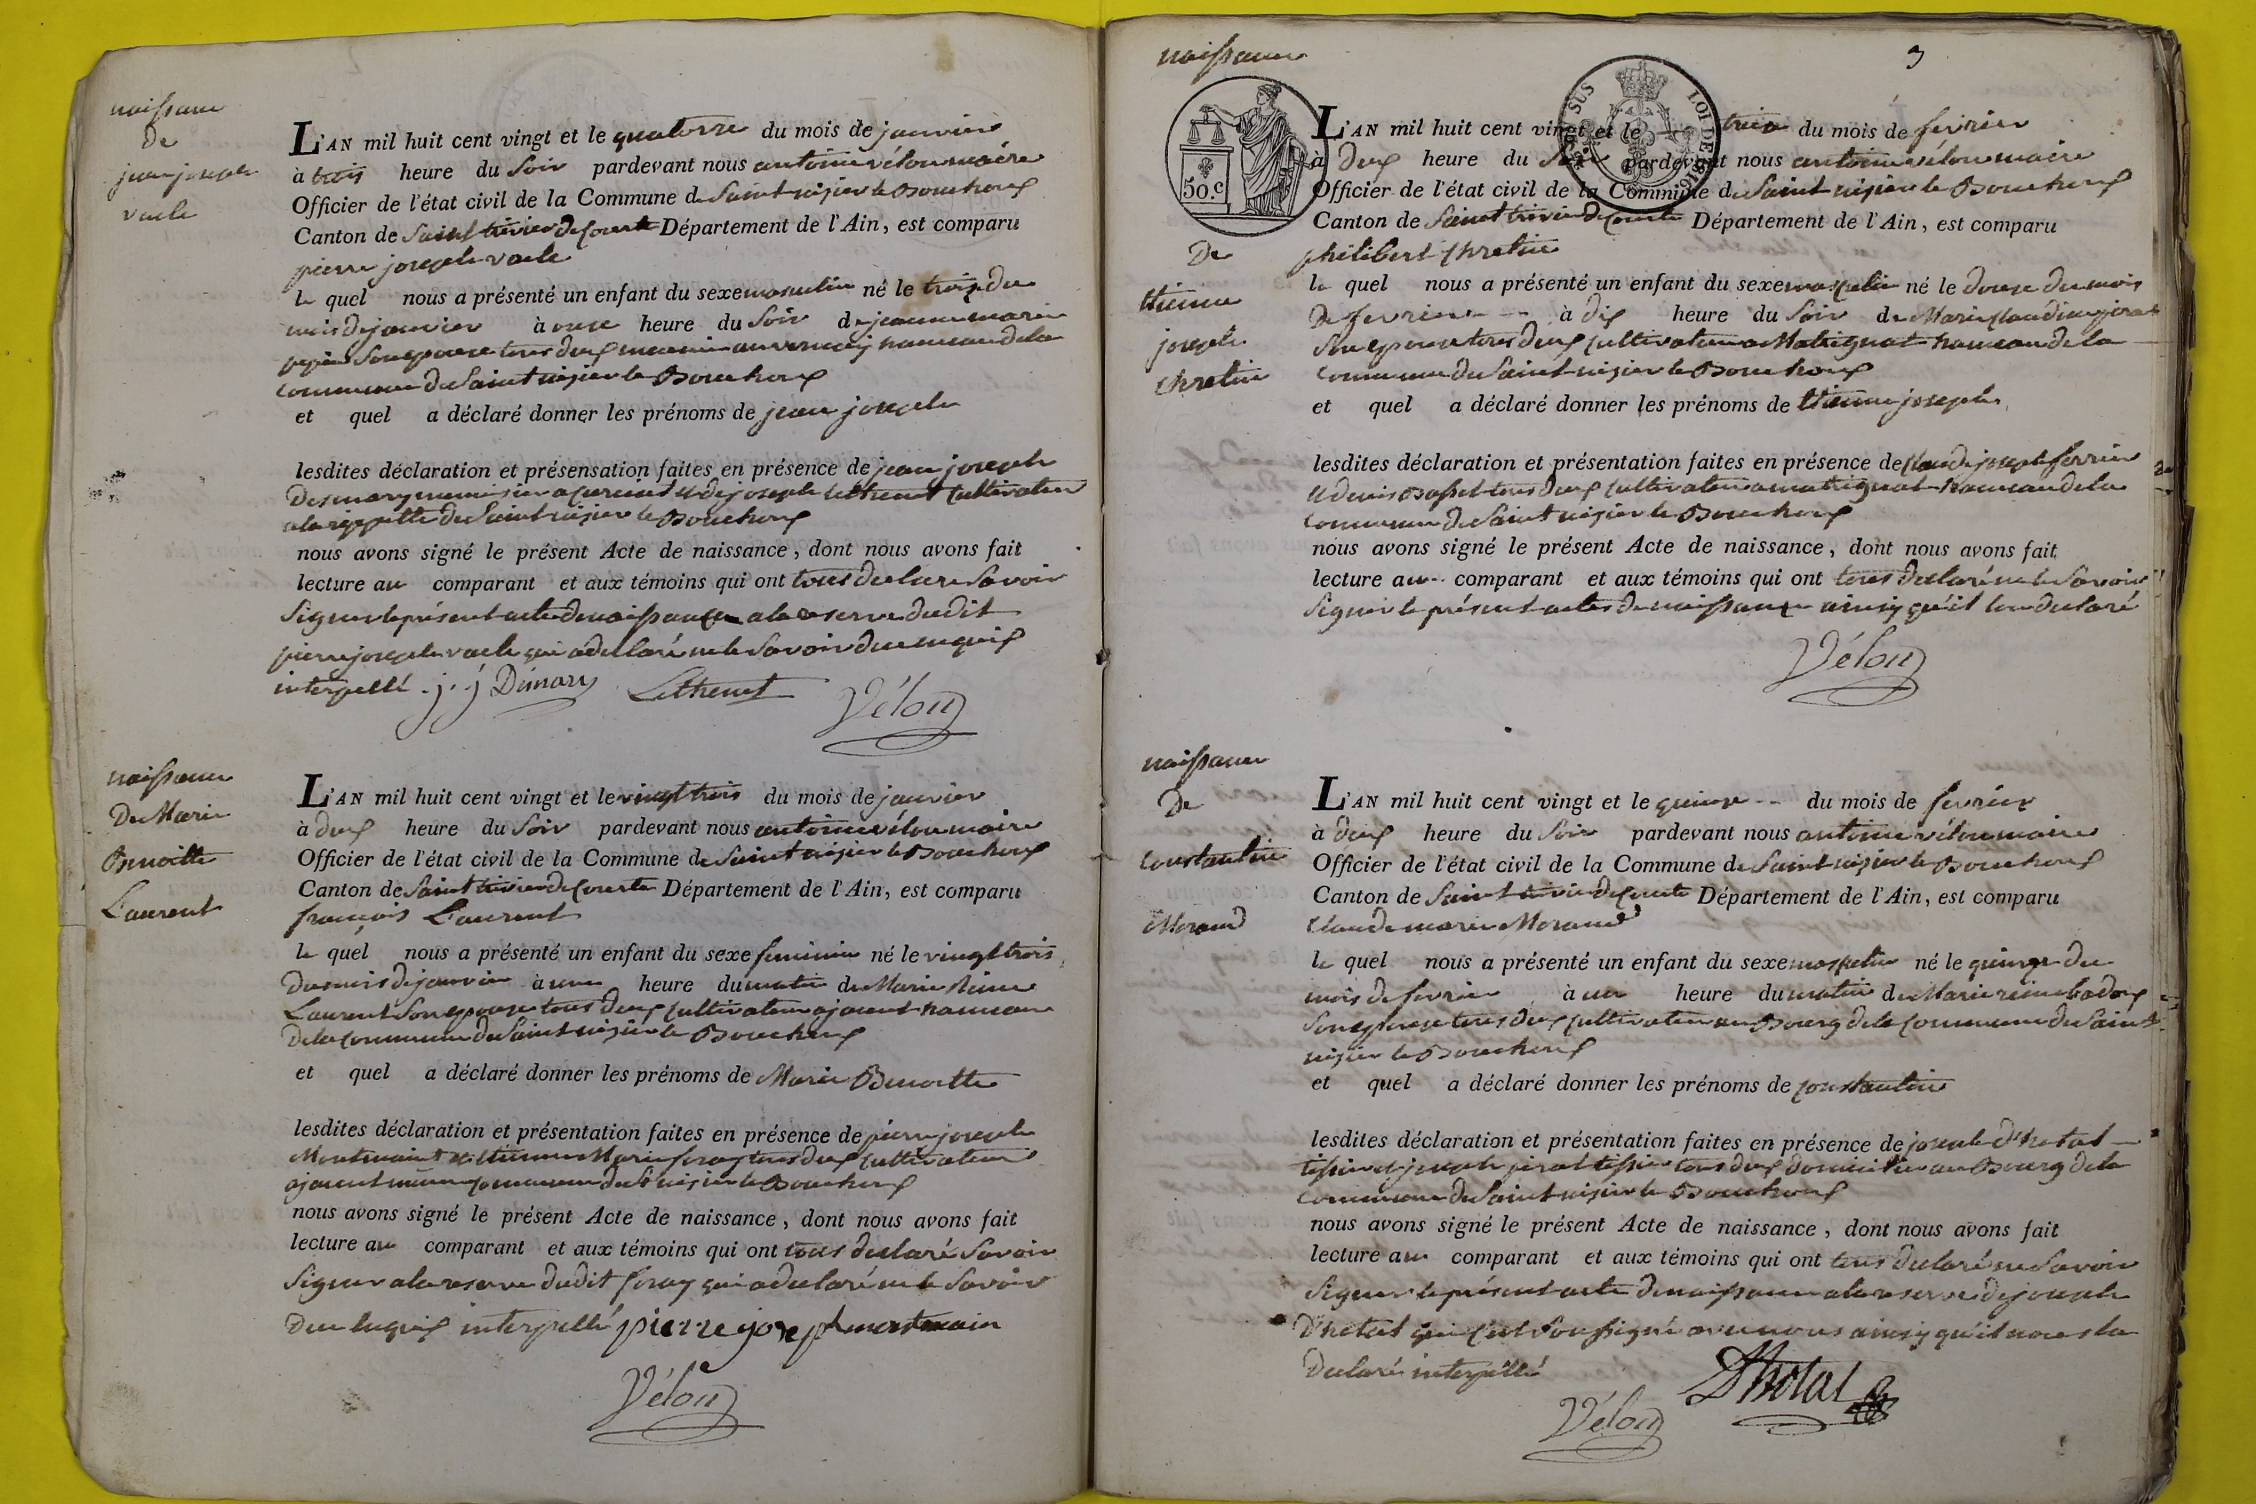 naissance
de
jean joseph
vacle
L'AN mil huit cent vingt et le quatorze du mois de janvier
à trois heure du soir pardevant nous antoine vélon maire
Officier de l'état civil de la Commune de Saint nizier le Bouchoux
Canton de Saint trivier de Courte Département de l'Ain, est comparu
pierre joseph vacle
le quel nous a présenté un enfant du sexe masculin né le treize du
mois de janvier à onze heure du soir de jeanne marie
son epouse tous deux au hameau de la
commune de Saint nizier le Bouchoux
et quel a déclaré donner les prénoms de jean joseph
lesdites déclaration et présensation faites en présence de jean joseph
Desmary menuisier a curciat et de joseph Lethenet cultivateur
a la rippette de Saint nizier le Bouchoux
nous avons signé le présent Acte de naissance, dont nous avons fait
lecture au comparant et aux témoins qui ont tous declare savoir
signer le présent acte de naissance a la reserve dudit
pierre joseph vacle qui a declaré ne le savoir de ce enquis
interpellé . j. j Dimary Lethenet Vélon
naissance
De Marie
Benoitte
Laurent
L'AN mil huit cent vingt et le vingt trois du mois de janvier
à deux heure du soir pardevant nous antoine vélon maire
Officier de l'état civil de la Commune de Saint nizier le Bouchoux
Canton de Saint trivier de Courte Département de l'Ain, est comparu
françois Laurent
le quel nous a présenté un enfant du sexe feminin né le vingt trois
du mois de janvier à une heure du matin de Marie
Laurent son epouse tous deux cultivateur a jacent hameau
de la commune de Saint nizier le Bouchoux
et quel a déclaré donner les prénoms de Marie Benoitte
lesdites déclaration et présentation faites en présence de pierre joseph
Montmain et étienne Marie foray tous deux cultivateur
a jacent commune de St nizier le Bouchoux
nous avons signé le présent Acte de naissance, dont nous avons fait
lecture au comparant et aux témoins qui ont tous declaré savoir
signer a la reserve dudit foray qui a declaré ne le savoir
de ce enquis interpellé pierre joseph montmain
Vélon
naissance
3
50.c
SUS
LOI DE 1816
De
thienne
joseph
chretin
L'AN mil huit cent vingt et le treize du mois de fevrier
à deux heure du soir pardevant nous antoine vélon maire
Officier de l'état civil de la Commune de Saint nizier le Bouchoux
Canton de Saint trivier de Courte Département de l'Ain, est comparu
philibert chretin
le quel nous a présenté un enfant du sexe masculin né le douze du mois
de fevrier à dix heure du soir de Marie claudine pirat
son epouse tous deux cultivateur a Matrignat hameau de la
commune de Saint nizier le Bouchoux
et quel a déclaré donner les prénoms de thienne joseph
lesdites déclaration et présentation faites en présence de claude joseph ferrier
et denis Basset tous deux cultivateur a matrignat hameau de la
commune de Saint nizier le Bouchoux
nous avons signé le présent Acte de naissance, dont nous avons fait
lecture au comparant et aux témoins qui ont tous declaré ne le savoir
signer le présent acte de naissance ainsy qu'il l'on declaré
Vélon
naissance
De
constantin
Morand
L'AN mil huit cent vingt et le quinze du mois de fevrier
à deux heure du soir pardevant nous antoine vélon maire
Officier de l'état civil de la Commune de Saint nizier le Bouchoux
Canton de Saint trivier de Courte Département de l'Ain, est comparu
claude marie Morand
le quel nous a présenté un enfant du sexe masculin né le quinze du
mois de fevrier à un heure du matin de Marie reine badoux
son epouse tous deux cultivateur au Bourg de la commune de Saint
nizier le Bouchoux
et quel a déclaré donner les prénoms de constantin
lesdites déclaration et présentation faites en présence de joseph d'hotal
tissier et joseph pirat tissier tous deux domicilié au Bourg de la
commune de Saint nizier le Bouchoux
nous avons signé le présent Acte de naissance, dont nous avons fait
lecture au comparant et aux témoins qui ont tous declaré ne savoir
signer le présent acte de naissance a la reserve de joseph
D'hotal qui c'est soussigné avec nous ainsy qu'il nous la
declaré interpellé
Dhotal
Vélon